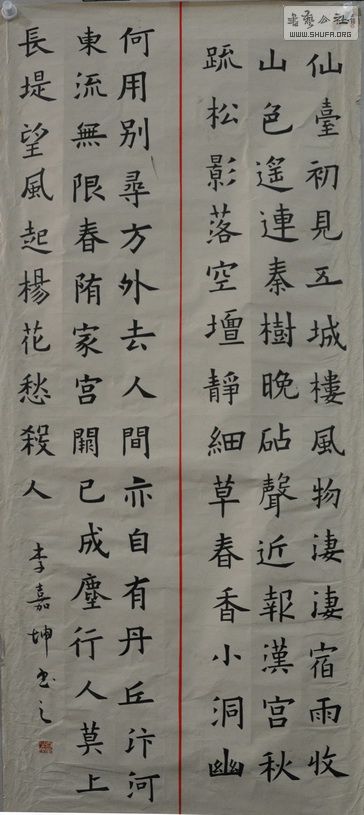 仙臺初見五城樓風物淒淒宿雨收
山色遙連秦樹晚砧聲近報漢宮秋
疏松影落空壇靜細草春香小洞幽
何用別尋方外去人間亦自有丹丘汴河
東流無限春陏家宮闕已成塵行人莫上
長堤望風起楊花愁殺人
李嘉坤书之
书艺公社
WWW.SHUFA.ORG